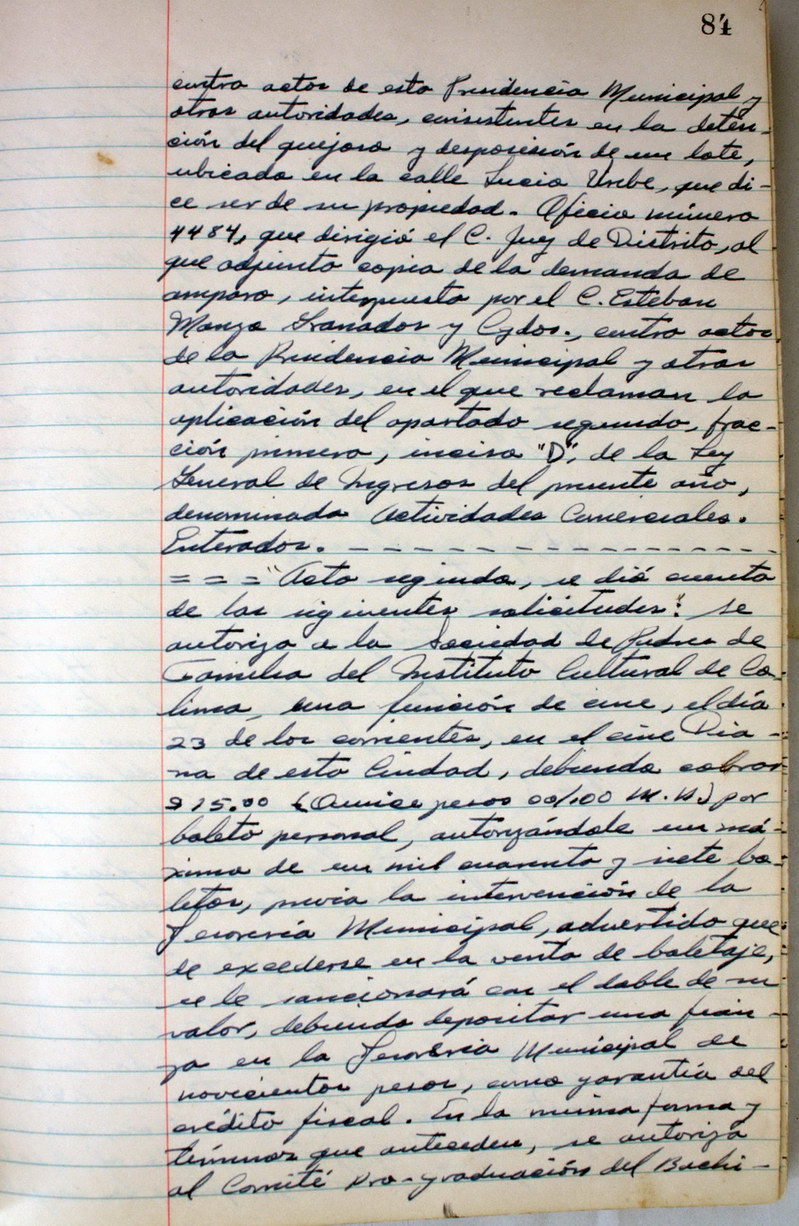 84
contra actos de esta Presidencia Municipal y
otras autoridades, consistentes en la deten-
ción del quejoso y desposesión de un lote,
ubicado en la calle Lucio Uribe, que di-
ce ser de su propiedad. Oficio número
4484, que dirigió el C. Juez de Distrito, al
que adjunto copia de la demanda de
amparo, interpuesta por el C. Esteban
Manzo Granados y Cgdos., contra actos
de la Presidencia Municipal y otras
autoridades, en el que reclaman la
aplicación del apartado segundo, frac-
ción primera, inciso "D", de la Ley
General de Ingresos del presente año,
denominada Actividades Comerciales.
Enterados. - - - - - - - - - - - - - - -
= = = "Acto seguido, se dió cuenta
de las siguientes solicitudes": Se
autoriza a la Sociedad de Padres de
Familia del Instituto Cultural de Co-
lima, una función de cine, el día
23 de los corrientes, en el cine Dia-
na de esta Ciudad, debiendo cobrar
$15.00 (Quince pesos 00/100 M.N.) por
boleto personal, autorizándole un má-
ximo de un mil cuarenta y siete bo-
letos, previa la intervención de la
Tesorería Municipal, advertido que
de excederse en la venta de boletaje,
se le sancionará con el doble de su
valor, debiendo depositar una fian-
za en la Tesorería Municipal de
novecientos pesos, como garantía del
crédito fiscal. En la misma forma y
términos que anteceden, se autoriza
al Comité Pro-graduación del Bachi-